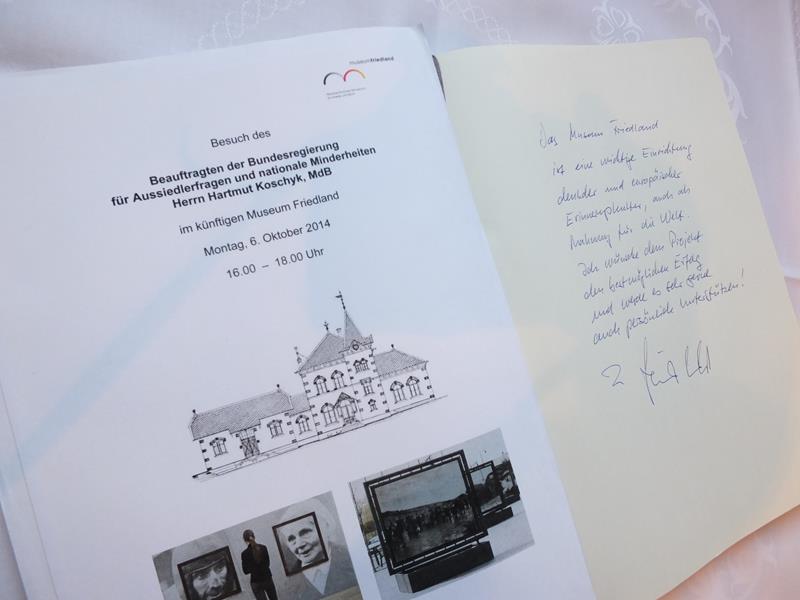 museumfriedland
Besuch des
Beauftragten der Bundesregierung
für Aussiedlerfragen und nationale Minderheiten
Herrn Hartmut Koschyk, MdB
im künftigen Museum Friedland
Montag, 6. Oktober 2014
16.00 – 18.00 Uhr
Das Museum Friedland
ist eine wichtige Einrichtung
deutscher und europäischer
Erinnerungskultur, auch als
Mahnung für die Welt.
Ich wünsche dem Projekt
den bestmöglichen Erfolg
und werde es sehr gerne
auch persönlich unterstützen!